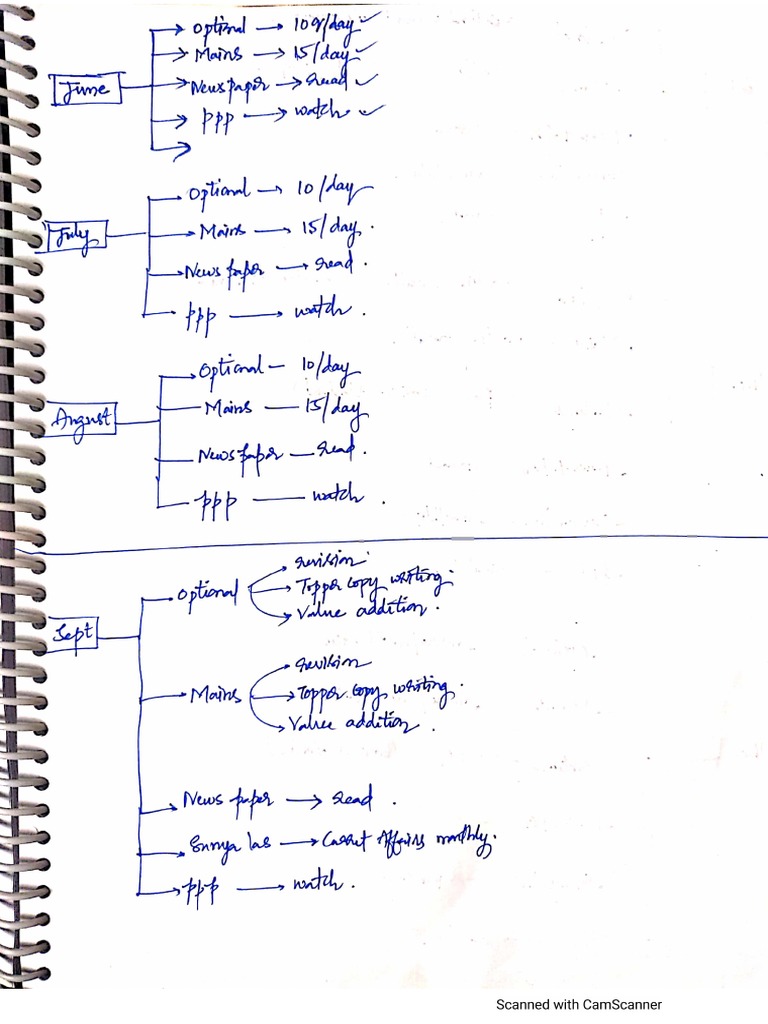 June
Optional → 10q/day ✓
→ Mains → 15/day ✓
→ Newspaper → read ✓
→ PPP → watch ✓
→
July
→ Optional → 10/day
→ Mains → 15/day.
→ Newspaper → read.
→ PPP → watch.
August
→ Optional - 10/day
Mains - 15/day
Newspaper - read.
PPP - watch.
Sept
→ Optional → revision
→ Topper copy writing.
→ Value addition.
→ Mains → revision
→ Topper copy writing.
→ Value addition.
→ Newspaper → read.
→ Ias → Affairs monthly.
→ PPP → watch.
Scanned with CamScanner